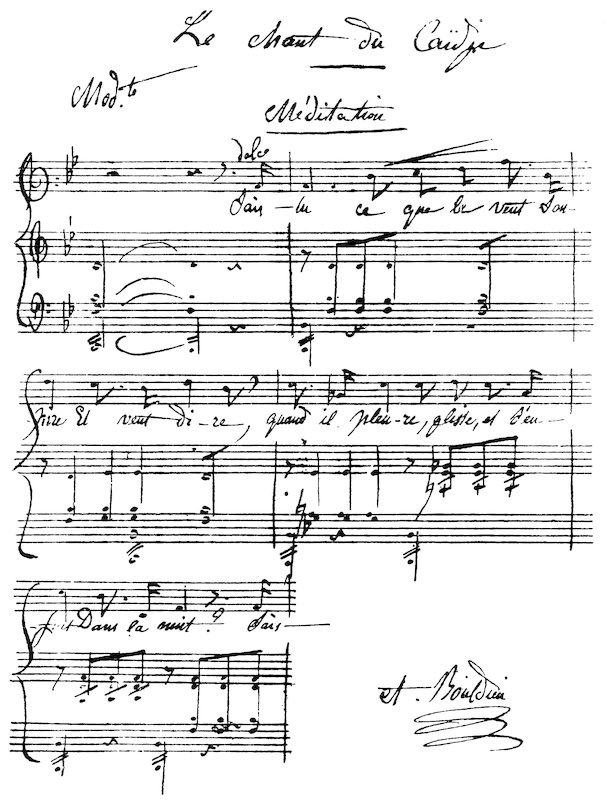 Le chant du
Mod.to
Méditation
dolce
Sais-tu ce que le vent Sou-
pire Et veut di-re, quand il pleu-re, glisse, et s'en-
-fuit Dans la nuit? Sais-